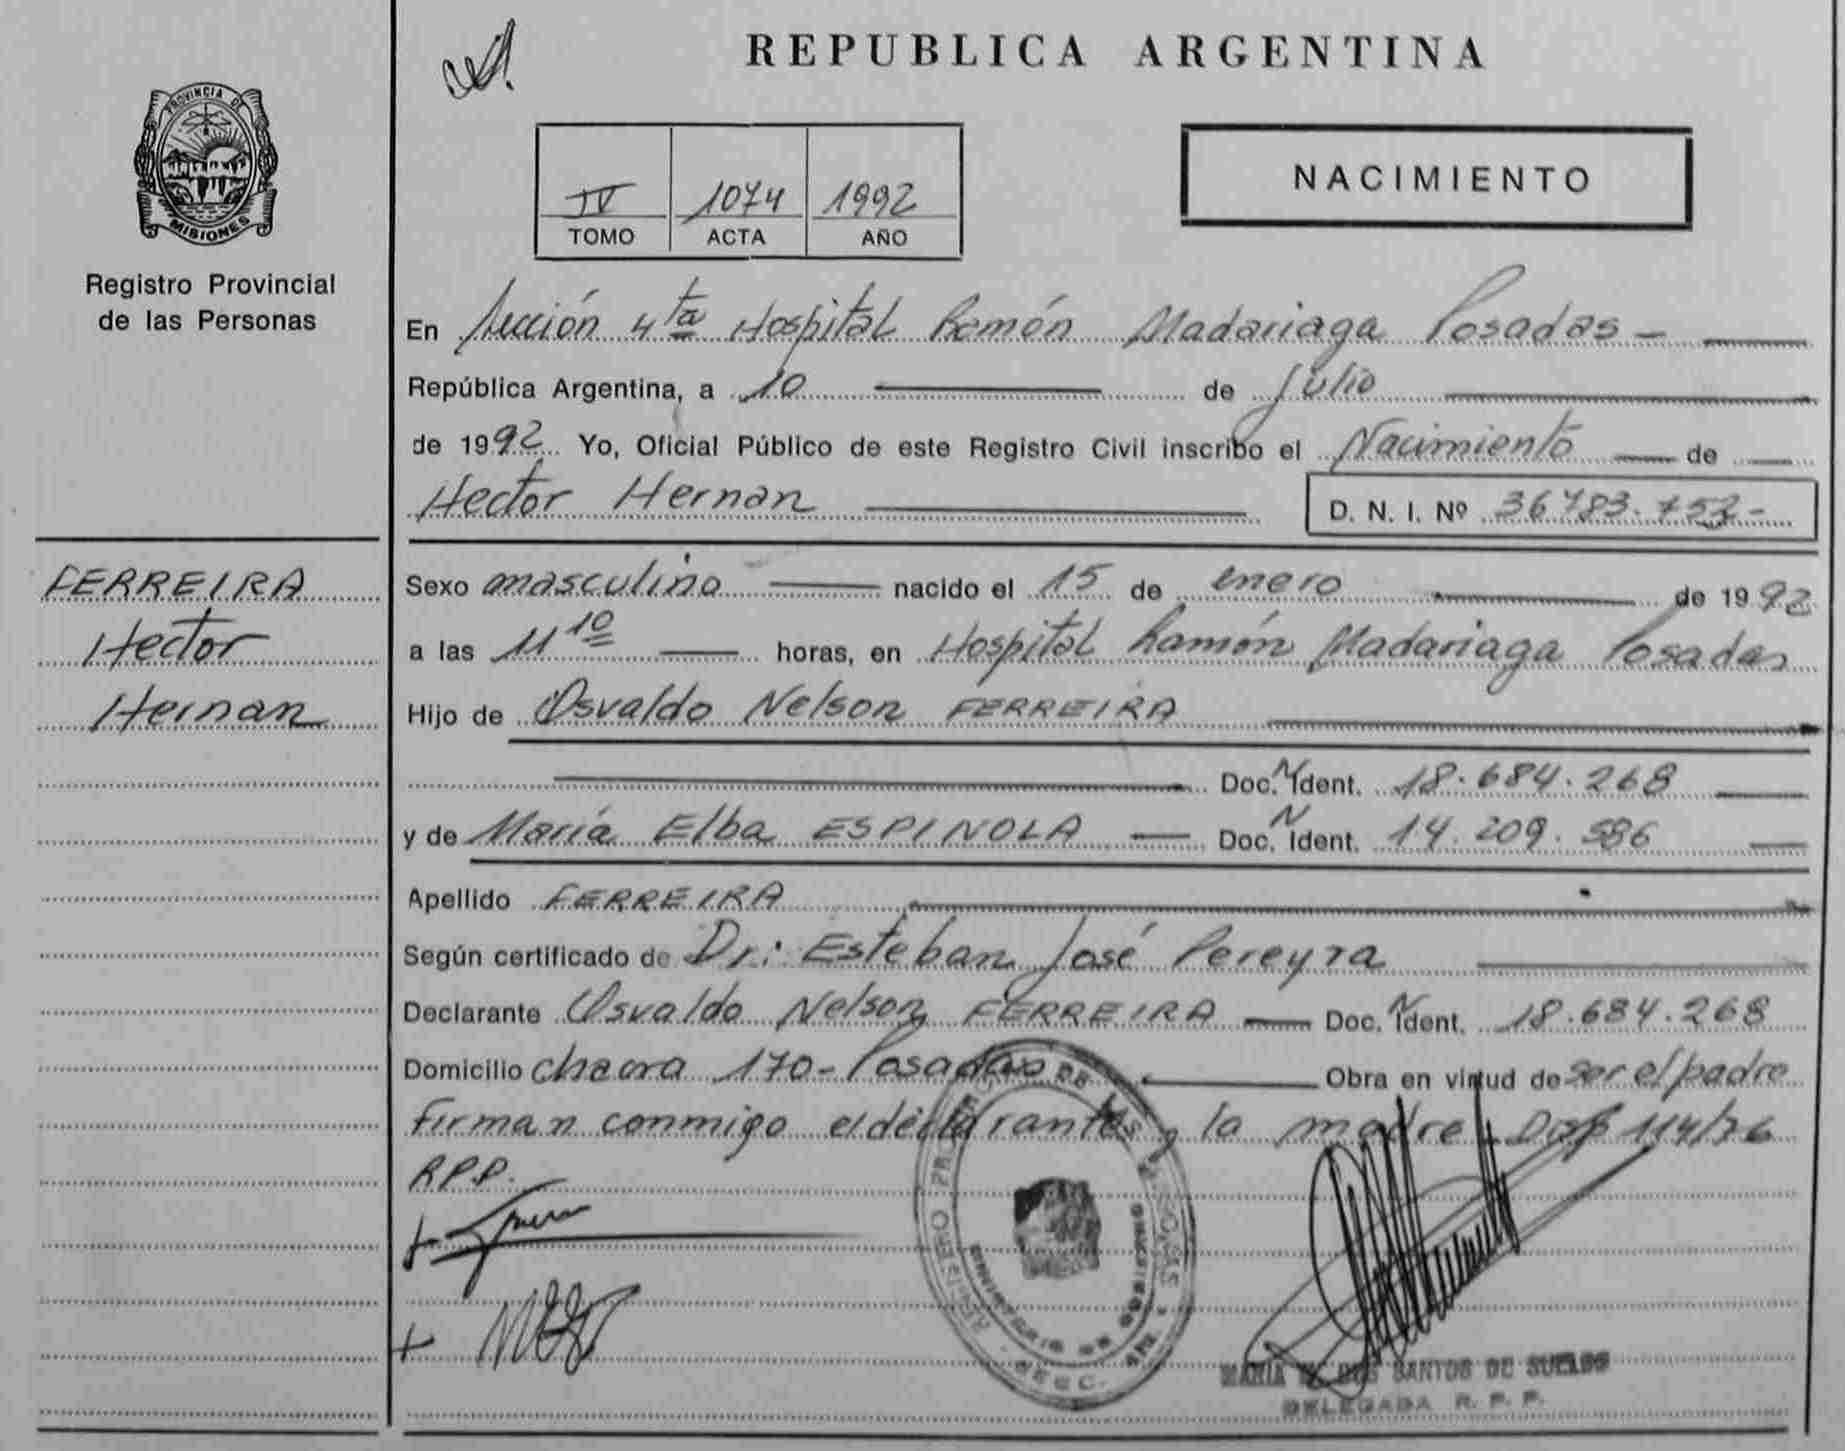 REPUBLICA ARGENTINA
PROVINCIA DE
MISIONES
Registro Provincial
de las Personas
IV 1074 1992
TOMO ACTA AÑO
NACIMIENTO
En Sección 4ta Hospital Ramón Madariaga Posadas -
República Argentina, a 10 de Julio
de 1992 Yo, Oficial Público de este Registro Civil inscribo el Nacimiento de
Hector Hernan D. N. I. Nº 36783.752-
FERREIRA
Hector
Hernan
Sexo masculino nacido el 15 de enero de 1992
a las 11 10 horas, en Hospital Ramón Madariaga Posadas
Hijo de Osvaldo Nelson FERREIRA
Doc. N Ident. 18.684.268
y de María Elba ESPINOLA Doc. N Ident. 14.209.586
Apellido FERREIRA
Según certificado de Dr: Esteban José Pereyra
Declarante Osvaldo Nelson FERREIRA Doc. N Ident. 18.684.268
Domicilio chacra 170- Posadas Obra en virtud de ser el padre
firman conmigo el declarante y la madre. Disp 114/76
R.P.P.
MARIA DOS SANTOS DE
DELEGADA R. P. P.